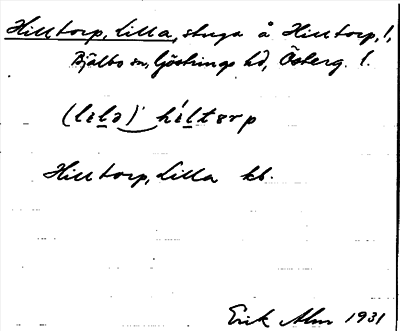 Hilltorp, Lilla, stuga å Hilltorp, l.,
Bjälbo sn, Göstrings hd, Österg. l.
(lɪlə) híltɵrp
Hilltorp, Lilla kb.
Erik Alm 1931